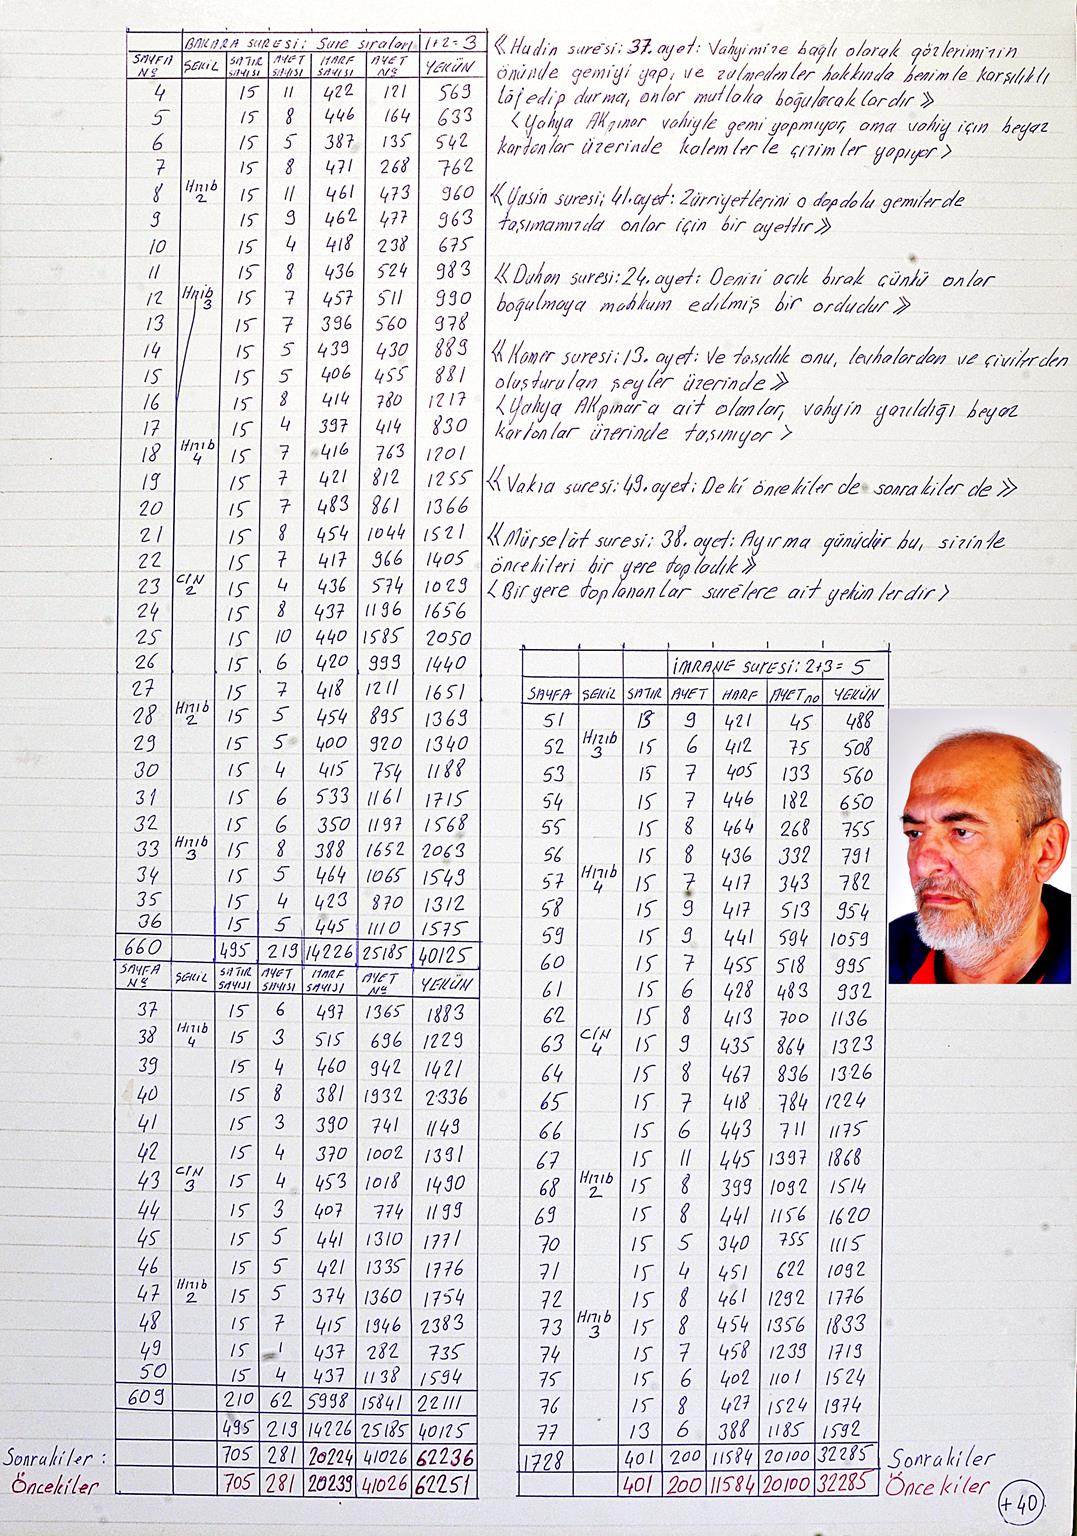 BAKARA SURESİ: Sure sıraları 1+2=3
SAYFA Nº ŞEKİL SATIR SAYISI AYET SAYISI HARF SAYISI AYET Nº YEKÜN
4 15 11 422 121 569
5 15 8 446 164 633
6 15 5 387 135 542
7 15 8 471 268 762
8 Hızıb 2 15 11 461 473 960
9 15 9 462 477 963
10 15 4 418 238 675
11 15 8 436 524 983
12 Hızıb 3 15 7 457 511 990
13 15 7 396 560 978
14 15 5 439 430 889
15 15 5 406 455 881
16 15 8 414 780 1217
17 15 4 397 414 830
18 Hızıb 4 15 7 416 763 1201
19 15 7 421 812 1255
20 15 7 483 861 1366
21 15 8 454 1044 1521
22 15 7 417 966 1405
23 CİN 2 15 4 436 574 1029
24 15 8 437 1196 1656
25 15 10 440 1585 2050
26 15 6 420 999 1440
27 15 7 418 1211 1651
28 Hızıb 2 15 5 454 895 1369
29 15 5 400 920 1340
30 15 4 415 754 1188
31 15 6 533 1161 1715
32 15 6 350 1197 1568
33 Hızıb 3 15 8 388 1652 2063
34 15 5 464 1065 1549
35 15 4 423 870 1312
36 15 5 445 1110 1575
660 495 219 14226 25185 40125
SAYFA Nº ŞEKİL SATIR SAYISI AYET SAYISI HARF SAYISI AYET Nº YEKÜN
37 15 6 497 1365 1883
38 Hızıb 4 15 3 515 696 1229
39 15 4 460 942 1421
40 15 8 381 1932 2336
41 15 3 390 741 1149
42 15 4 370 1002 1391
43 CİN 3 15 4 453 1018 1490
44 15 3 407 774 1199
45 15 5 441 1310 1771
46 15 5 421 1335 1776
47 Hızıb 2 15 5 374 1360 1754
48 15 7 415 1946 2383
49 15 1 437 282 735
50 15 4 437 1138 1594
609 210 62 5998 15841 22111
495 219 14226 25185 40125
Sonrakiler: 705 281 20224 41026 62236
Öncekiler 705 281 20239 41026 62251
《Hudin suresi: 37. ayet: Vahyimize bağlı olarak gözlerimizin
önünde gemiyi yap, ve zulmedenler hakkında benimle karşılıklı
löf edip durma, onlar mutlaka boğulacaklardır》
<Yahya AKpınar vahiyle gemi yapmıyor, ama vahiy için beyaz
kartonlar üzerinde kalemlerle çizimler yapıyor>
《Yasin suresi; 41. ayet: Zürriyetlerini o dopdolu gemilerde
taşımamızda onlar için bir ayettir》
《Duhan suresi: 24. ayet: Denizi açık bırak çünkü onlar
boğulmaya mahkum edilmiş bir ordudur》
《Kamer suresi: 13. ayet: Ve taşıdık onu, levhalardan ve çivilerden
oluşturulan şeyler üzerinde》
<Yahya AKpınar'a ait olanlar, vahyin yazıldığı beyaz
kartonlar üzerinde taşınıyor>
《Vakıa suresi: 49. ayet: De ki öncekiler de sonrakiler de》
《Mürselât suresi; 38. ayet: Ayırma günüdür bu, sizinle
öncekileri bir yere topladık》
<Bir yere toplananlar surelere ait yekünlerdir>
İMRANE SURESİ: 2+3=5
SAYFA ŞEKİL SATIR AYET HARF AYET no YEKÜN
51 13 9 421 45 488
52 Hızıb 3 15 6 412 75 508
53 15 7 405 133 560
54 15 7 446 182 650
55 15 8 464 268 755
56 15 8 436 332 791
57 Hızıb 4 15 7 417 343 782
58 15 9 417 513 954
59 15 9 441 594 1059
60 15 7 455 518 995
61 15 6 428 483 932
62 15 8 413 700 1136
63 CİN 4 15 9 435 864 1323
64 15 8 467 836 1326
65 15 7 418 784 1224
66 15 6 443 711 1175
67 15 11 445 1397 1868
68 Hızıb 2 15 8 399 1092 1514
69 15 8 441 1156 1620
70 15 5 340 755 1115
71 15 4 451 622 1092
72 15 8 461 1292 1776
73 Hızıb 3 15 8 454 1356 1833
74 15 7 458 1239 1719
75 15 6 402 1101 1524
76 15 8 427 1524 1974
77 13 6 388 1185 1592
1728 401 200 11584 20100 32285 Sonrakiler
401 200 11584 20100 32285 Öncekiler
+40